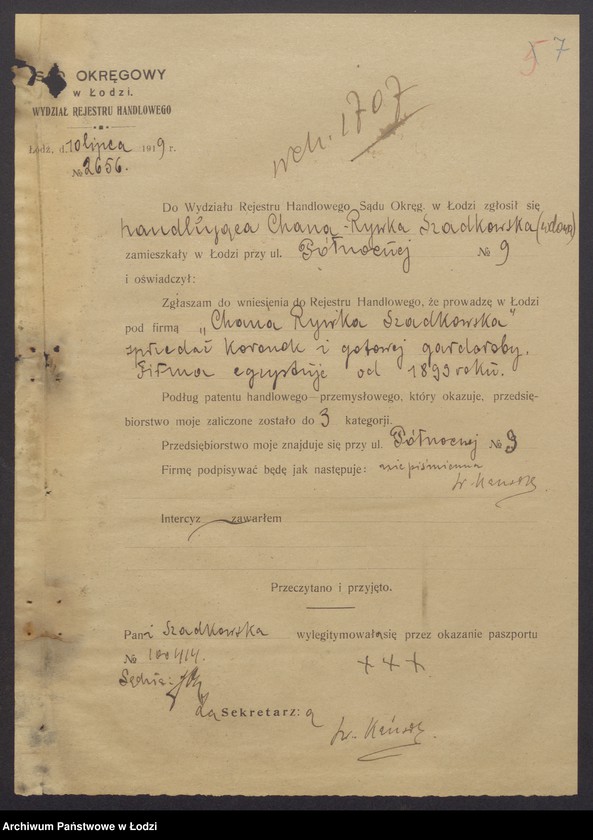 5 7
SĄD OKRĘGOWY
w Łodzi.
WYDZIAŁ REJESTRU HANDLOWEGO
Łódź, d. 10 lipca 1919 r.
№ 2656.
wch. 1707
Do Wydziału Rejestru Handlowego Sądu Okręg. w Łodzi zgłosił się
handlująca Chana-Rywka Szadkowska (wdowa)
zamieszkały w Łodzi przy ul. Północnej № 9
i oświadczył:
Zgłaszam do wniesienia do Rejestru Handlowego, że prowadzę w Łodzi
pod firmą „Chana Rywka Szadkowska"
sprzedaż koronek i gotowej garderoby.
Firma egzystuje od 1893 roku.
Podług patentu handlowego przemysłowego, który okazuje, przedsię-
biorstwo moje zaliczone zostało do 3 kategorji.
Przedsiębiorstwo moje znajduje się przy ul. Północnej № 9
Firmę podpisywać będę jak następuje: niepiśmienna
Intercyz zawarłem
Przeczytano i przyjęto.
Pani Szadkowska wylegitymowała się przez okazanie paszportu
№ 100414.
+ + +
Sędzia:
Za Sekretarz: a
Archiwum Państwowe w Łodzi